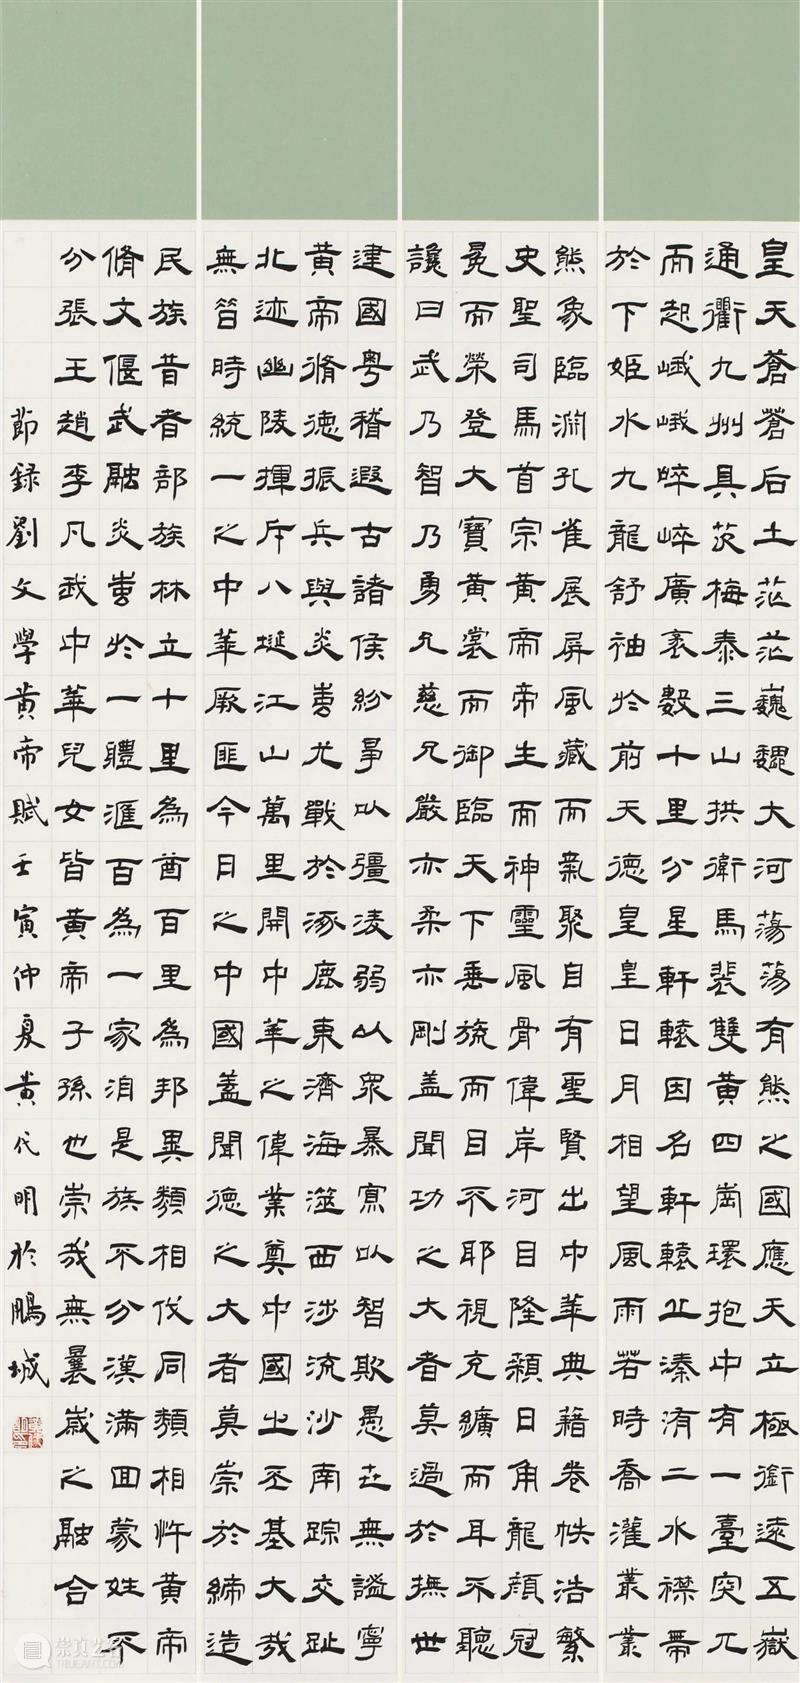 皇天蒼蒼后土茫茫巍巍大河蕩蕩有熊之國應天立極銜遠五嶽
通衢九州具茨梅泰三山拱衛馬裴雙黃四崗環抱中有一臺突兀
而起峨峨崒崒廣袤數十里分星軒轅因名軒轅丘溱洧二水襟帶
於下姬水九龍舒袖於前天德皇皇日月相望風雨若時喬灌叢叢
熊象臨淵孔雀展屏風藏而氣聚自有聖賢出中華典籍卷帙浩繁
史聖司馬首宗黃帝帝生而神靈風骨偉岸河目隆顙日角龍顏冠
冕而榮登大寶黃裳而御臨天下垂旒而目不耶視充纊而耳不聽
讒曰武乃智乃勇允慈允嚴亦柔亦剛蓋聞功之大者莫過於撫世
建國粵稽遐古諸侯紛爭以彊凌弱以眾暴寡以智欺愚世無謐寧
黃帝脩德振兵與炎蚩尤戰於涿鹿東濟海澨西涉流沙南踪交趾
北迹幽陵揮斥八埏江山萬里開中華之偉業奠中國之丕基大哉
無時統一之中華厥匪今日之中國蓋聞德之大者莫崇於締造
民族昔者部族林立十里為酋百里為邦異類相伐同類相忤黃帝
脩文偃武融炎蚩於一體滙百為一家洎是族不分漢滿回蒙姓不
分張王趙李凡我中華兒女皆黃帝子孫也崇哉無曩歲之融合
節録劉文學黃帝賦壬寅仲夏黃代明於鵬城
崇真艺客
TRUEART.COM